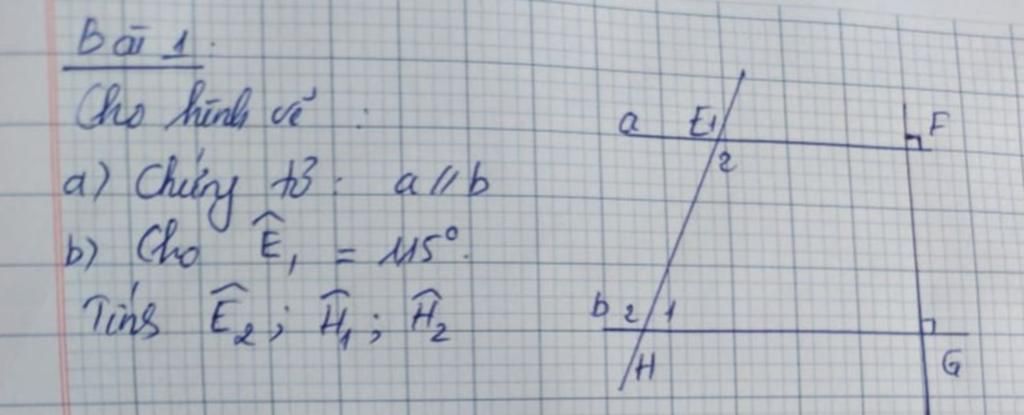 Bài 1:
Cho hình vẽ:
a) Chứng tỏ: a // b
b) Cho Ê₁ = 115°.
Tính Ê₂; Ĥ₁; Ĥ₂
a E 1 F
2
b 2 1
H G